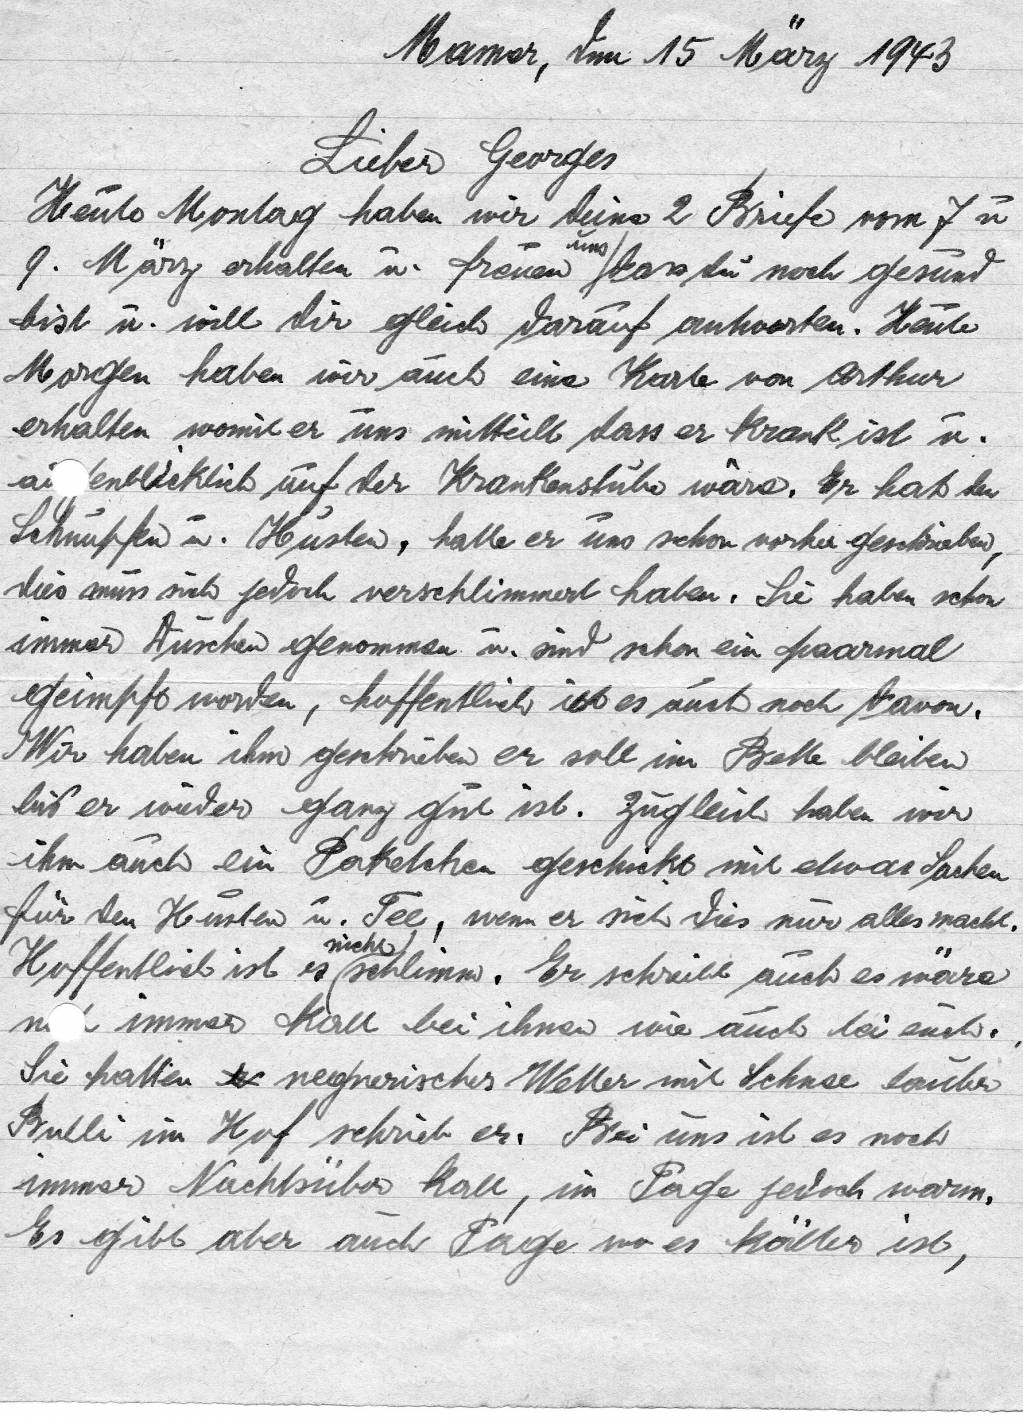 Mamer, den 15 März 1943
Lieber Georges
Heute Montag haben wir deine 2 Briefe vom 7 u
9. März erhalten u. freuen uns dass du noch gesund
bist u. will dir gleich darauf antworten. Heute
Morgen haben wir auch eine Karte von Arthur
erhalten womit er uns mitteilt dass er krank ist u.
au enblicklich auf der Krankenstube wäre. Er hat den
Schnupfen u. Husten, hatte er uns schon vorher geschrieben,
dies muss sich jedoch verschlimmert haben. Sie haben schon
immer Duschen genommen u. sind schon ein paarmal
geimpft worden, hoffentlich ist es auch noch davon.
Wir haben ihm geschrieben er soll im Bette bleiben
bis er wieder ganz gut ist. Zugleich haben wir
ihm auch ein Paketchen geschickt mit etwas Sachen
für den Husten u. Tee, wenn er sich dies nur alles macht.
Hoffentlich ist es nicht schlimm. Er schreibt auch es wäre
n h immer kalt bei ihnen wie auch bei euch.
Sie hatten regnerisches Wetter mit Schnee lauter
Bulli im Hof schrieb er. Bei uns ist es noch
immer Nachtsüber kalt, im Tage jedoch warm.
Es gibt aber auch Tage wo es kälter ist,